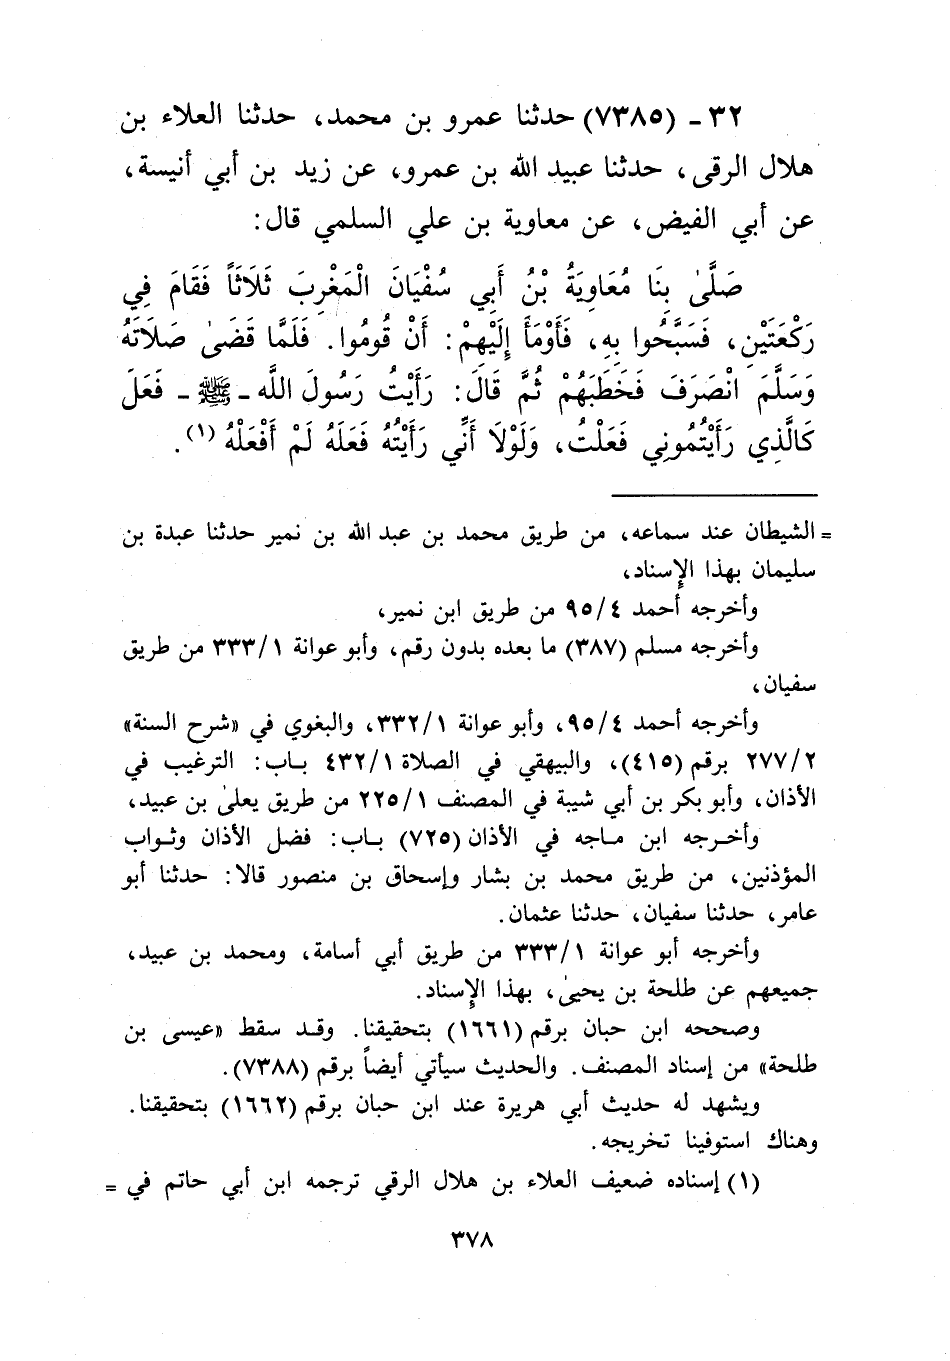 ٣٢ - (٧٣٨٥) حدثنا عمرو بن محمد، حدثنا العلاء بن
هلال الرقى، حدثنا عبيد الله بن عمرو، عن زيد بن أبي أنيسة،
عن أبي الفيض، عن معاوية بن علي السلمي قال:
صَلَّىٰ بِنَا مُعَاوِيَةُ بْنُ أَبِي سُفْيَانَ الْمَغْرِبَ ثَلَاثَاً فَقَامَ فِي
رَكْعَتَيْنِ، فَسَبَّحُوا بِهِ، فَأَوْمَأَ إِلَيْهِمْ: أَنْ قُومُوا. فَلَمَّا قَضَىٰ صَلَاتَهُ
وَسَلَّمَ انْصَرَفَ فَخَطَبَهُمْ ثُمَّ قَالَ: رَأَيْتُ رَسُولَ اللَّه - ﷺ - فَعَلَ
كَالَّذِي رَأَيْتُمُونِي فَعَلْتُ، وَلَوْلَا أَنِّي رَأَيْتُهُ فَعَلَهُ لَمْ أَفْعَلْهُ (١).
= الشيطان عند سماعه، من طريق محمد بن عبد الله بن نمير حدثنا عبدة بن
سليمان بهذا الإسناد،
وأخرجه أحمد ٩٥/٤ من طريق ابن نمير،
وأخرجه مسلم (٣٨٧) ما بعده بدون رقم، وأبو عوانة ٣٣٣/١ من طريق
سفيان،
وأخرجه أحمد ٩٥/٤، وأبو عوانة ٣٣٢/١، والبغوي في «شرح السنة»
٢٧٧/٢ برقم (٤١٥)، والبيهقي في الصلاة ٤٣٢/١ باب: الترغيب في
الأذان، وأبو بكر بن أبي شيبة في المصنف ٢٢٥/١ من طريق يعلىٰ بن عبيد،
وأخرجه ابن ماجه في الأذان (٧٢٥) باب: فضل الأذان وثواب
المؤذنين، من طريق محمد بن بشار وإسحاق بن منصور قالا: حدثنا أبو
عامر، حدثنا سفيان، حدثنا عثمان.
وأخرجه أبو عوانة ٣٣٣/١ من طريق أبي أسامة، ومحمد بن عبيد،
جميعهم عن طلحة بن يحيىٰ، بهذا الإسناد.
وصححه ابن حبان برقم (١٦٦١) بتحقيقنا. وقد سقط «عيسى بن
طلحة» من إسناد المصنف. والحديث سيأتي أيضاً برقم (٧٣٨٨).
ويشهد له حديث أبي هريرة عند ابن حبان برقم (١٦٦٢) بتحقيقنا.
وهناك استوفينا تخريجه.
(١) إسناده ضعيف العلاء بن هلال الرقي ترجمه ابن أبي حاتم في =
٣٧٨